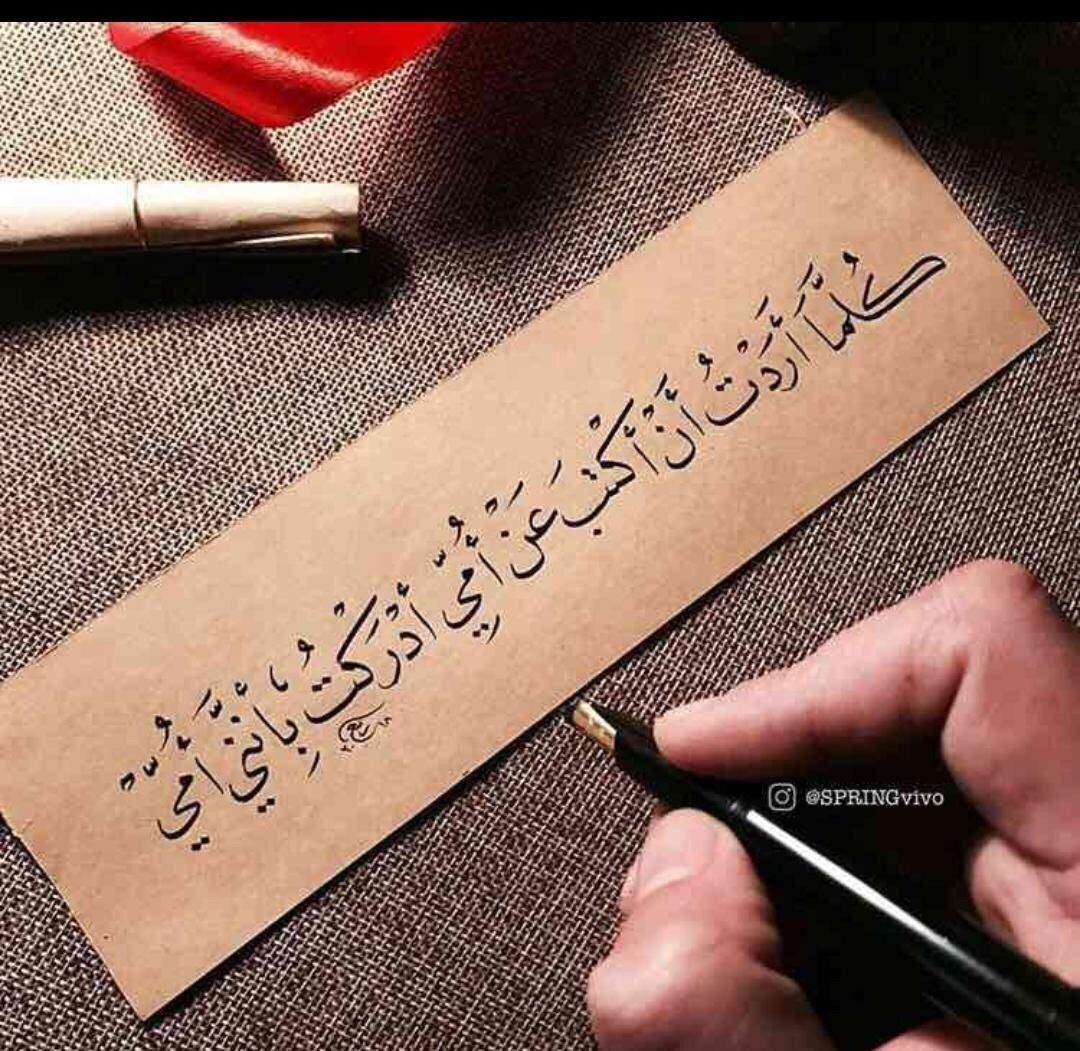 كُلَّمَا أَرَدْتُ أَنْ أَكْتُبَ عَنْ أُمِّي أَدْرَكْتُ بِأَنَّنِي أُمِّيٌّ
@SPRINGvivo